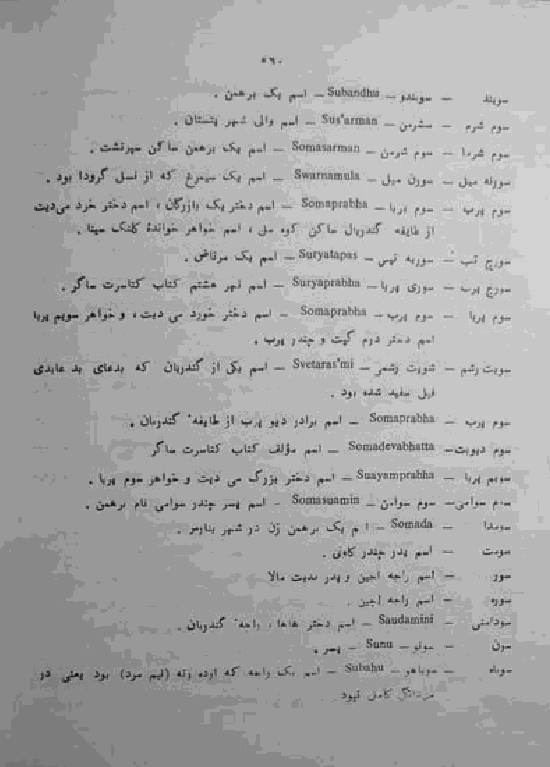 ۵۶۰
سوبند — سوبندو — Subandhu — اسم یک برهمن .
سوم شرم — سشرمن — Sus'arman — اسم والی شهر پتستان .
سوم شرما — سوم شرمن — Somasarman — اسم یک برهمن ساکن
سورنه میل — سورن میل — Swarnamula — اسم یک سیمرغ که از نسل گرودا بود .
سوم پرب — سوم پربا — Somaprabha — اسم دختر یک بازرگان ، اسم دختر خرد می‌دیت
از طایفه گندربان ساکن کوه ، اسم خواهر خواندهٔ کلنگ سینا .
سورج تپ — سوریه تپس — Suryatapas — اسم یک مرتاض .
سورج پرب — سوری پربا — Suryaprabha — اسم نهر هشتم کتاب کتاسرت ساگر .
سوم پربا — سوم پرب — Somaprabha — اسم دختر خورد می دیت ، و خواهر سویم پربا
اسم دختر دوم گیت و چندر پرب .
سویت رشم — شویت رشمر — Svetaras'mi — اسم یکی از گندربان که بدعای بد عابدی
فیل سفید شده بود .
سوم پرب — Somaprabha — اسم برادر دیو پرب از طایفهٔ گندربان .
سوم دیوبت — Somadevabhatta — اسم مؤلف کتاب کتاسرت ساگر
سویم پربا — Suayamprabha — اسم دختر بزرگ می دیت و خواهر سوم پربا .
سوم سوامی — سوم سوامن — Somasuamin — اسم پسر چندر سوامی نام برهمن .
سومدا — Somada — اسم یک برهمن زن در شهر بنارس .
سومت — اسم پدر چندر کانتی .
سور — اسم راجه اجین و پدر مدیت مالا
سوره — اسم راجه اجین .
سودامنی — Saudamini — اسم دختر هاها ، راجهٔ گندربان .
سون — سونو — Sunu — پسر .
سوباه — سوباهو — Subahu — اسم یک راجه که ارده رته (نیم مرد) بود یعنی در
مردانگی کامل نبود